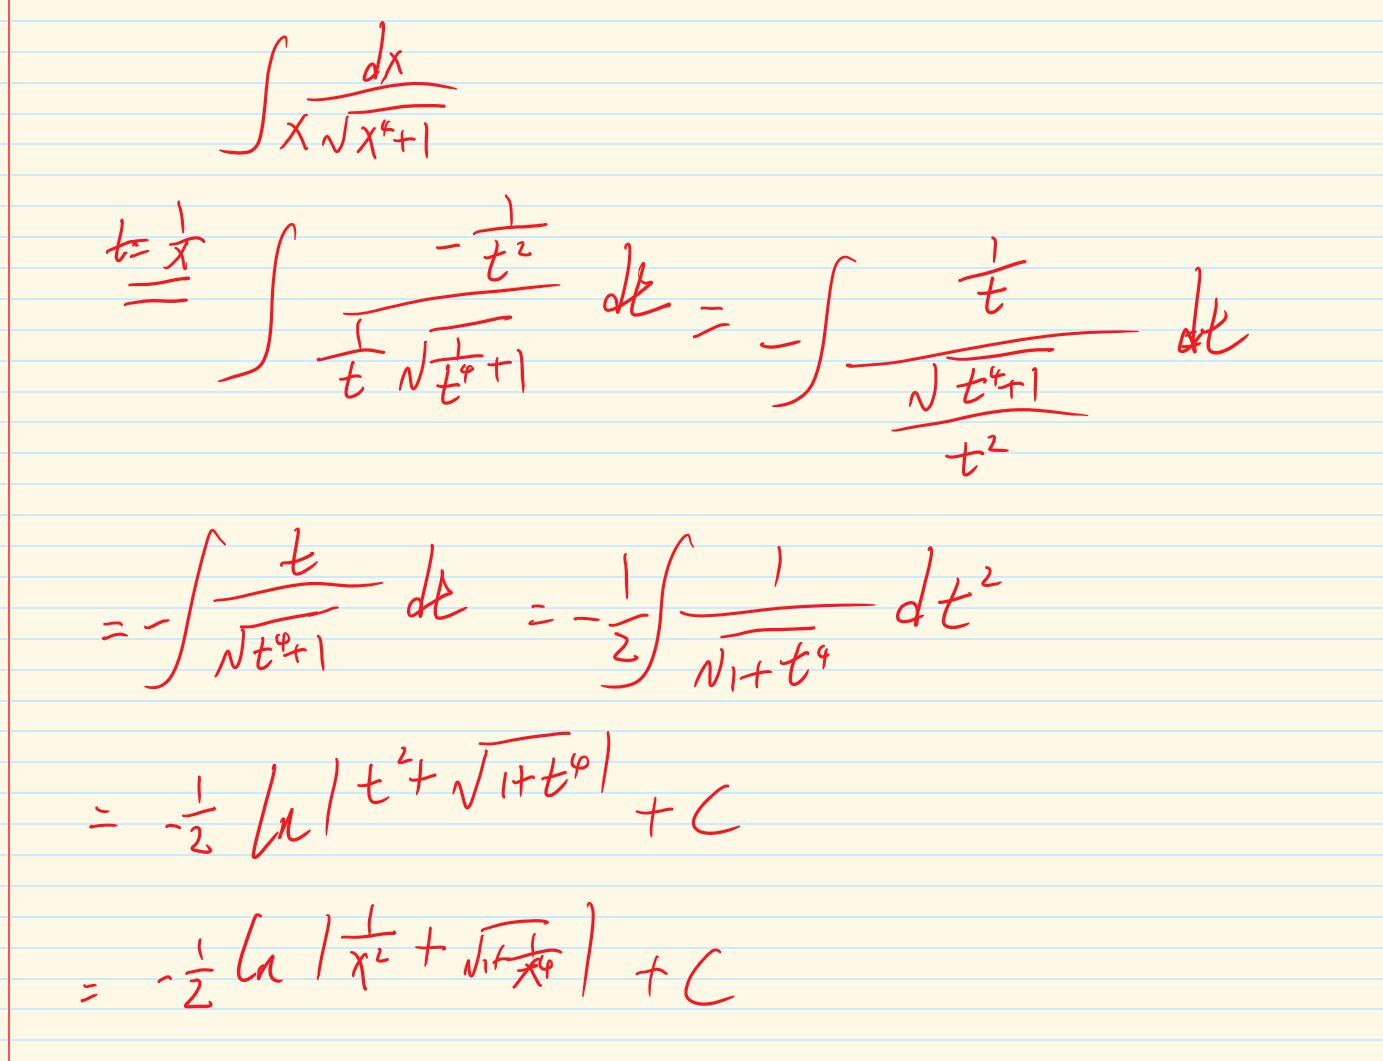 ∫ dx / (x√(x⁴+1))
t = 1/x = ∫ (-1/t²) / ((1/t)√(1/t⁴ + 1)) dt = -∫ (1/t) / (√(t⁴+1) / t²) dt
= -∫ t / √(t⁴+1) dt = -1/2 ∫ 1 / √(1+t⁴) dt²
= -1/2 ln|t² + √(1+t⁴)| + C
= -1/2 ln|1/x² + √(1+1/x⁴)| + C